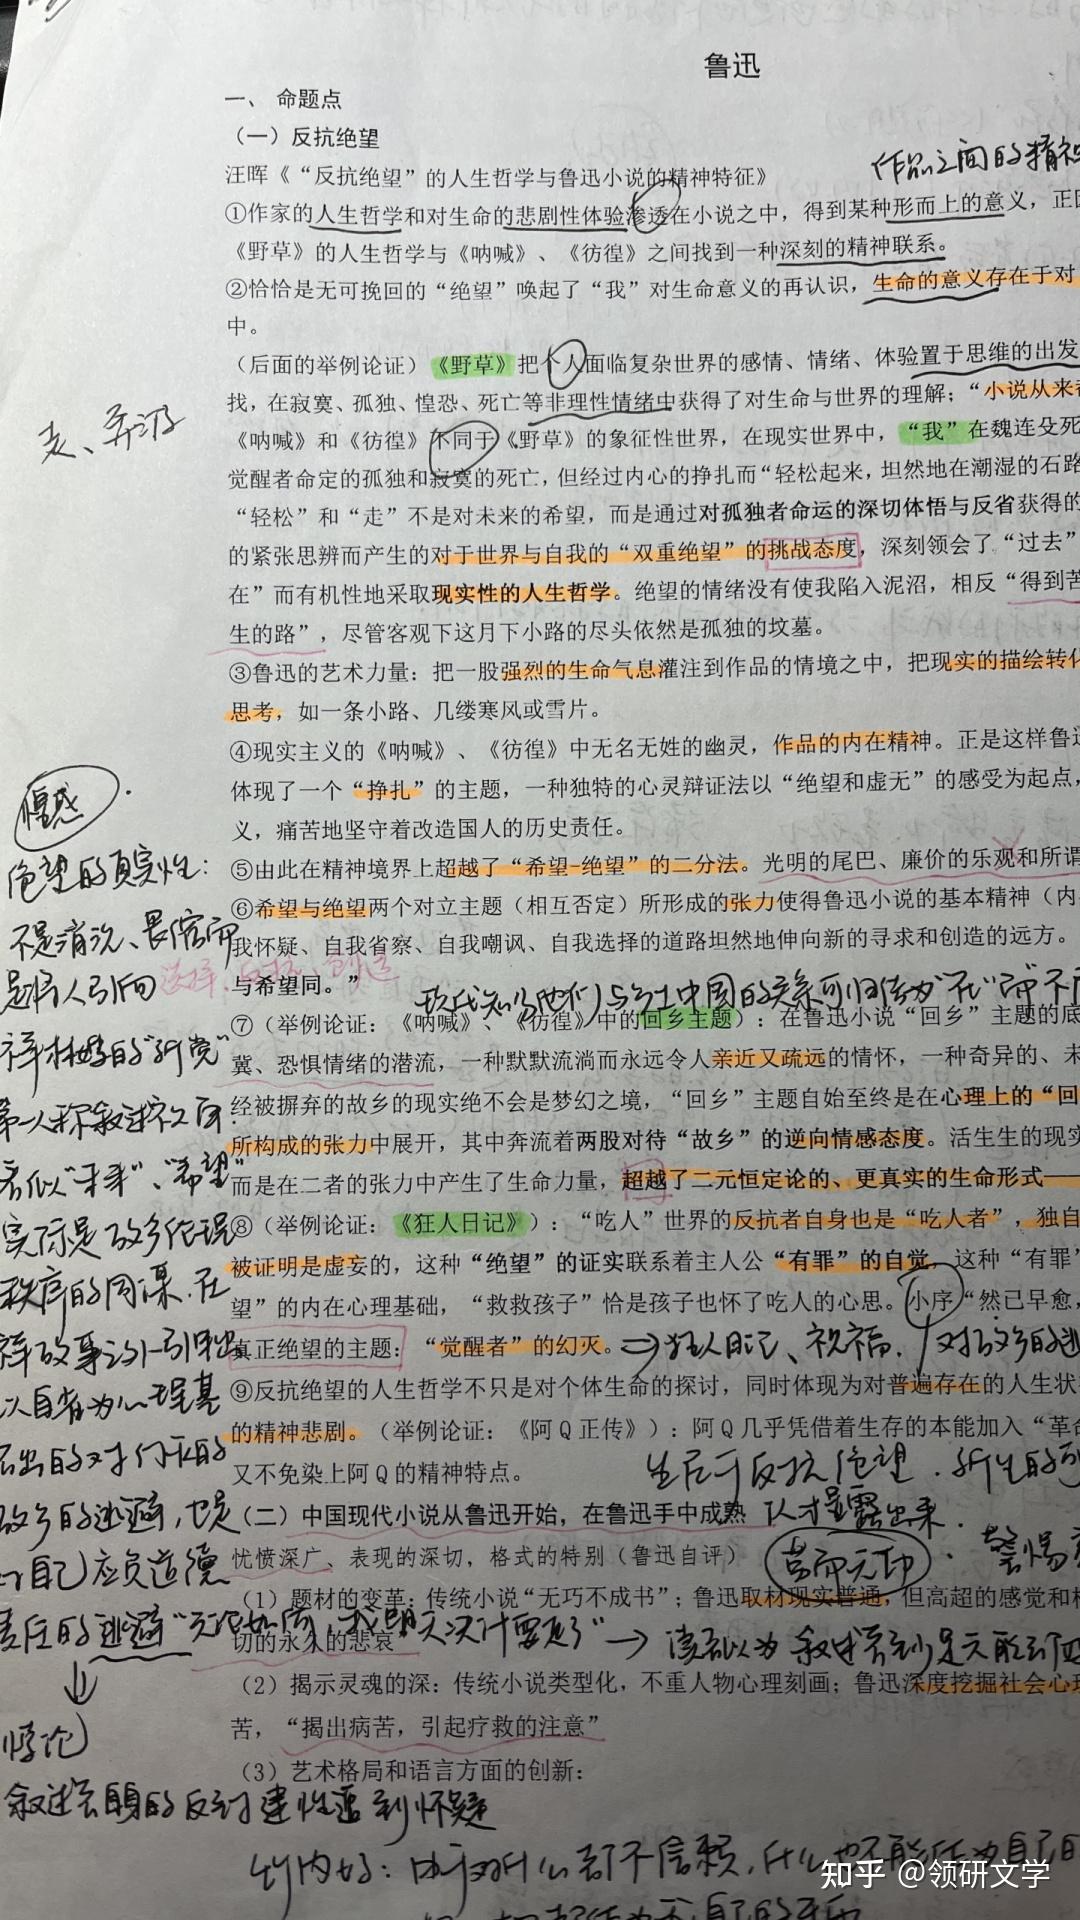 鲁迅
一、 命题点
（一）反抗绝望
作品之间的精神
汪晖《“反抗绝望”的人生哲学与鲁迅小说的精神特征》
①作家的人生哲学和对生命的悲剧性体验渗透在小说之中，得到某种形而上的意义，正因
《野草》的人生哲学与《呐喊》、《彷徨》之间找到一种深刻的精神联系。
②恰恰是无可挽回的“绝望”唤起了“我”对生命意义的再认识，生命的意义存在于对
中。
（后面的举例论证）《野草》把个人面临复杂世界的感情、情绪、体验置于思维的出发
找，在寂寞、孤独、惶恐、死亡等非理性情绪中获得了对生命与世界的理解；“小说从来
走、
《呐喊》和《彷徨》不同于《野草》的象征性世界，在现实世界中，“我”在魏连殳死
觉醒者命定的孤独和寂寞的死亡，但经过内心的挣扎而“轻松起来，坦然地在潮湿的石路
“轻松”和“走”不是对未来的希望，而是通过对孤独者命运的深切体悟与反省获得的
的紧张思辨而产生的对于世界与自我的“双重绝望”的挑战态度，深刻领会了“过去”
在”而有机性地采取现实性的人生哲学。绝望的情绪没有使我陷入泥沼，相反“得到苦
生的路”，尽管客观下这月下小路的尽头依然是孤独的坟墓。
③鲁迅的艺术力量：把一股强烈的生命气息灌注到作品的情境之中，把现实的描绘转化
思考，如一条小路、几缕寒风或雪片。
④现实主义的《呐喊》、《彷徨》中无名无姓的幽灵，作品的内在精神。正是这样鲁迅
体现了一个“挣扎”的主题，一种独特的心灵辩证法以“绝望和虚无”的感受为起点，
义，痛苦地坚守着改造国人的历史责任。
⑤由此在精神境界上超越了“希望-绝望”的二分法。光明的尾巴、廉价的乐观和所谓
⑥希望与绝望两个对立主题（相互否定）所形成的张力使得鲁迅小说的基本精神（内
我怀疑、自我省察、自我嘲讽、自我选择的道路坦然地伸向新的寻求和创造的远方。
与希望同。”
现代知识他们与乡土中国的关系可归结为“在”而“不
⑦（举例论证：《呐喊》、《彷徨》中的回乡主题）：在鲁迅小说“回乡”主题的底
冀、恐惧情绪的潜流，一种默默流淌而永远令人亲近又疏远的情怀，一种奇异的、未
经被摒弃的故乡的现实绝不会是梦幻之境，“回乡”主题自始至终是在心理上的“回
所构成的张力中展开，其中奔流着两股对待“故乡”的逆向情感态度。活生生的现实
而是在二者的张力中产生了生命力量，超越了二元恒定论的、更真实的生命形式—
⑧（举例论证：《狂人日记》）：“吃人”世界的反抗者自身也是“吃人者”，独自
被证明是虚妄的，这种“绝望”的证实联系着主人公“有罪”的自觉，这种“有罪”
望”的内在心理基础，“救救孩子”恰是孩子也怀了吃人的心思。小序“然已早愈，
真正绝望的主题：“觉醒者”的幻灭。
⇒狂人日记、祝福，对故乡的逃
⑨反抗绝望的人生哲学不只是对个体生命的探讨，同时体现为对普遍存在的人生状
的精神悲剧。（举例论证：《阿Q正传》）：阿Q几乎凭借着生存的本能加入“革命
又不免染上阿Q的精神特点。
生后于反抗绝望，所生的
（二）中国现代小说从鲁迅开始，在鲁迅手中成熟
队才暴露出来．
忧愤深广、表现的深切，格式的特别（鲁迅自评）
警惕
（1）题材的变革：传统小说“无巧不成书”；鲁迅取材现实普通，但高超的感觉和
切的永久的悲哀
（2）揭示灵魂的深：传统小说类型化，不重人物心理刻画；鲁迅深度挖掘社会心理
苦，“揭出病苦，引起疗救的注意”
（3）艺术格局和语言方面的创新：
惶惑
绝望的真实性：
不是消沉、畏惧而
是将人引向
选择、反抗、创造
祥林嫂的“所觉”
第一人称叙述介入后
看似“未来”、“希望”
实际是故乡伦理
秩序的同谋．在
祥故事之外引出
以自省为心理基
对自己应负道德
责任的逃避“无论如何，我明天决计要走了”
→读者以为叙述者
↓
悖论
竹内好：由于对什么都不信赖，什么也不能作为自己
知乎 @领研文学